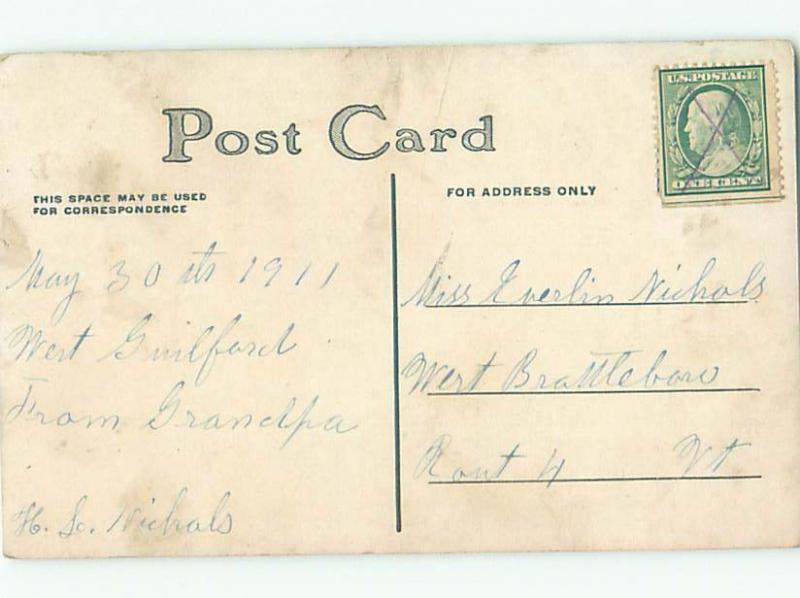 Post Card
THIS SPACE MAY BE USED
FOR CORRESPONDENCE
FOR ADDRESS ONLY
U.S. POSTAGE
ONE CENT
May 30 ths 1911
West Guilford
From Grandpa
H. L. Nichols
Miss Everlin Nichols
West Brattleboro
Rout 4 Vt